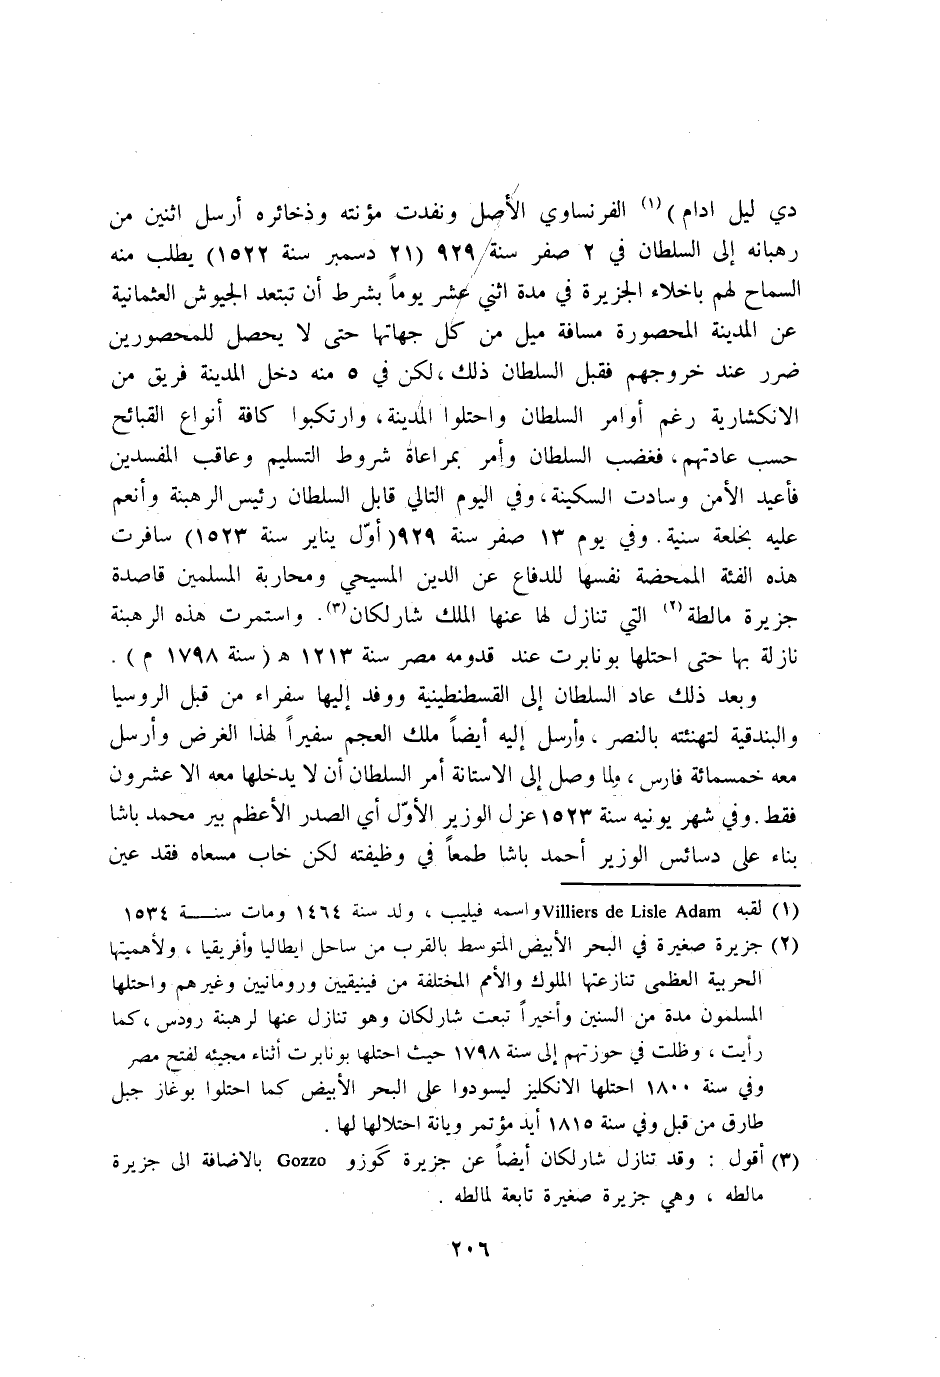 دي ليل ادام)(١) الفرنساوي الأصل ونفدت مؤنته وذخائره أرسل اثنين من
رهبانه إلى السلطان في ٢ صفر سنة ٩٢٩ (٢١ دسمبر سنة ١٥٢٢) يطلب منه
السماح لهم باخلاء الجزيرة في مدة اثني عشر يوماً بشرط أن تبتعد الجيوش العثمانية
عن المدينة المحصورة مسافة ميل من كل جهاتها حتى لا يحصل للمحصورين
ضرر عند خروجهم فقبل السلطان ذلك، لكن في ٥ منه دخل المدينة فريق من
الانكشارية رغم أوامر السلطان واحتلوا المدينة، وارتكبوا كافة أنواع القبائح
حسب عادتهم، فغضب السلطان وأمر بمراعاة شروط التسليم وعاقب المفسدين
فأعيد الأمن وسادت السكينة، وفي اليوم التالي قابل السلطان رئيس الرهبنة وأنعم
عليه بخلعة سنية. وفي يوم ١٣ صفر سنة ٩٢٩( أوّل يناير سنة ١٥٢٣) سافرت
هذه الفئة الممحضة نفسها للدفاع عن الدين المسيحي ومحاربة المسلمين قاصدة
جزيرة مالطة(٢) التي تنازل لها عنها الملك شارلكان(٣). واستمرت هذه الرهبنة
نازلة بها حتى احتلها بونابرت عند قدومه مصر سنة ١٢١٣ هـ (سنة ١٧٩٨ م) .
وبعد ذلك عاد السلطان إلى القسطنطينية ووفد إليها سفراء من قبل الروسيا
والبندقية لتهنئته بالنصر، وأرسل إليه أيضاً ملك العجم سفيراً لهذا الغرض وأرسل
معه خمسمائة فارس، ولما وصل إلى الاستانة أمر السلطان أن لا يدخلها معه الا عشرون
فقط. وفي شهر يونيه سنة ١٥٢٣ عزل الوزير الأوّل أي الصدر الأعظم بير محمد باشا
بناء على دسائس الوزير أحمد باشا طمعاً في وظيفته لكن خاب مسعاه فقد عين
(١) لقبه Villiers de Lisle Adam واسمه فيليب ، ولد سنة ١٤٦٤ ومات سنـــة ١٥٣٤
(٢) جزيرة صغيرة في البحر الأبيض المتوسط بالقرب من ساحل ايطاليا وأفريقيا ، ولأهميتها
الحربية العظمى تنازعتها الملوك والأمم المختلفة من فينيقيين ورومانيين وغيرهم واحتلها
المسلمون مدة من السنين وأخيراً تبعت شارلكان وهو تنازل عنها لرهبنة رودس، كما
رأيت ، وظلت في حوزتهم إلى سنة ١٧٩٨ حيث احتلها بونابرت أثناء مجيئه لفتح مصر
وفي سنة ١٨٠٠ احتلها الانكليز ليسودوا على البحر الأبيض كما احتلوا بوغاز جبل
طارق من قبل وفي سنة ١٨١٥ أيد مؤتمر ويانة احتلالها لها .
(٣) أقول : وقد تنازل شارلكان أيضاً عن جزيرة گوزو Gozzo بالاضافة الى جزيرة
مالطه ، وهي جزيرة صغيرة تابعة لمالطه .
٢٠٦